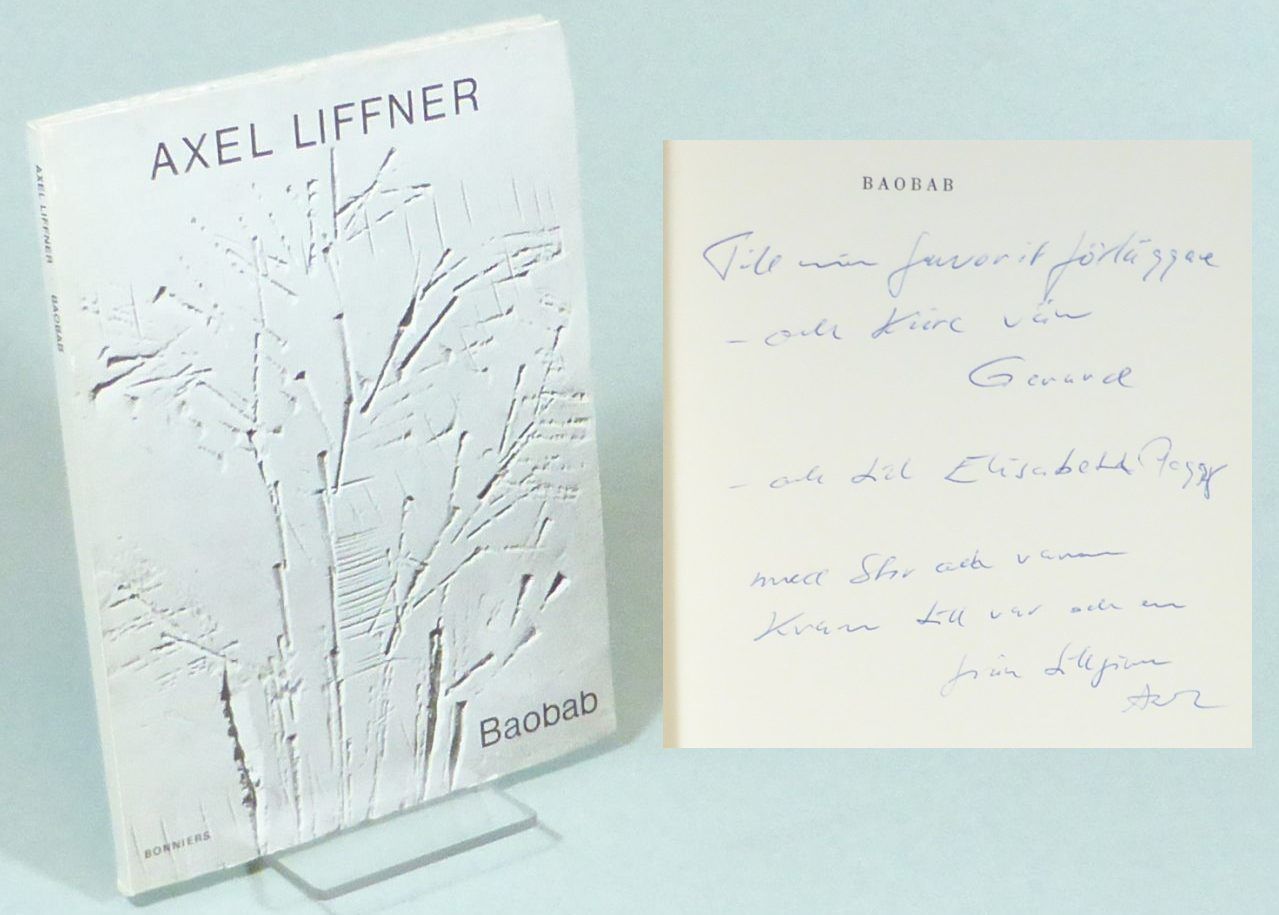 AXEL LIFFNER
AXEL LIFFNER BAOBAB
Baobab
BONNIERS
BAOBAB
Till min favorit förläggare
– och kära vän
Gerard
– och till Elisabeth Peggy
med stor och varm
Kram till var och en
från
Axel